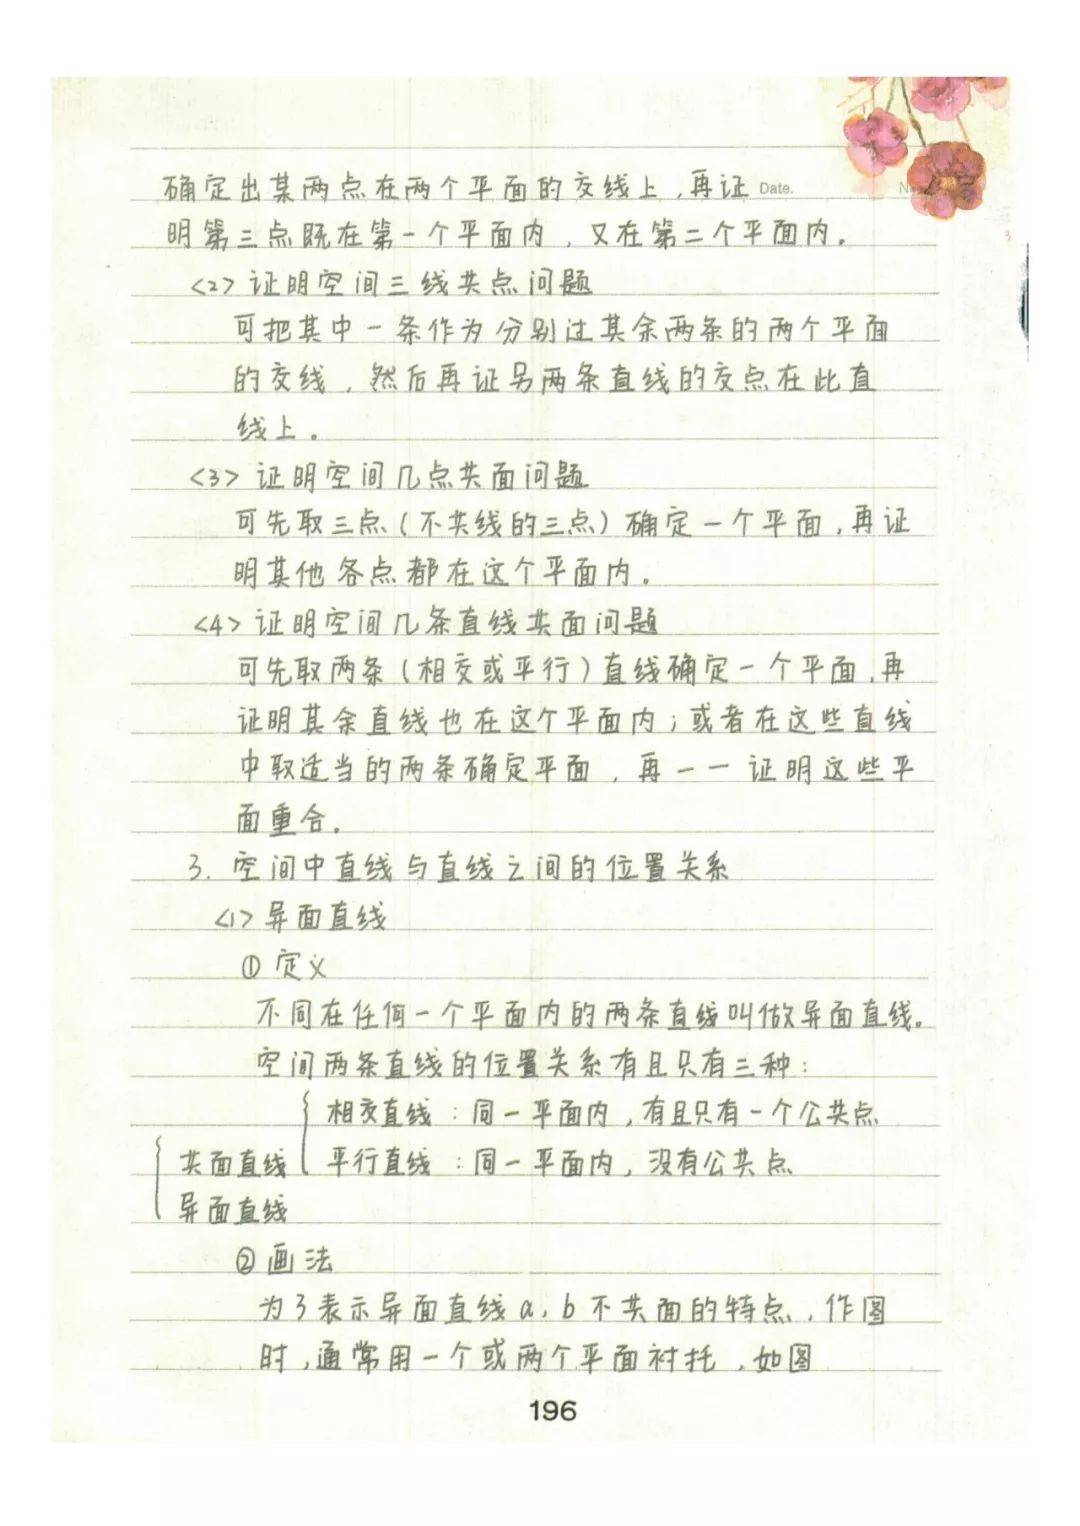 确定出某两点在两个平面的交线上,再证 Date.
明第三点既在第一个平面内,又在第二个平面内。
<2> 证明空间三线共点问题
可把其中一条作为分别过其余两条的两个平面
的交线,然后再证另两条直线的交点在此直
线上。
<3> 证明空间几点共面问题
可先取三点(不共线的三点)确定一个平面,再证
明其他各点都在这个平面内。
<4> 证明空间几条直线共面问题
可先取两条(相交或平行)直线确定一个平面,再
证明其余直线也在这个平面内;或者在这些直线
中取适当的两条确定平面,再一一证明这些平
面重合。
3. 空间中直线与直线之间的位置关系
<1> 异面直线
① 定义
不同在任何一个平面内的两条直线叫做异面直线。
空间两条直线的位置关系有且只有三种:
相交直线:同一平面内,有且只有一个公共点
共面直线 平行直线:同一平面内,没有公共点
异面直线
② 画法
为了表示异面直线a,b不共面的特点,作图
时,通常用一个或两个平面衬托,如图
196